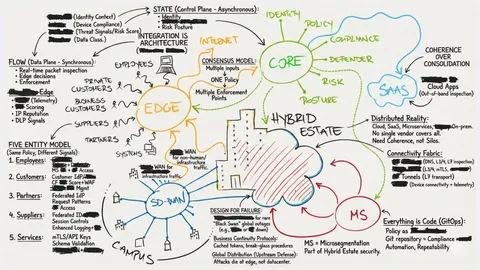 (Identity Context)
(Device Compliance)
(Threat Signals/Risk Score)
(Data Class.)
STATE (Control Plane - Asynchronous):
• Identity
• Risk Posture
INTEGRATION IS
ARCHITECTURE
FLOW (Data Plane - Synchronous):
• Real-time packet inspection
• Edge decisions
• Enforcement
Edge
(Telemetry)
Scoring
• IP Reputation
• DLP Signals
EMPLOYEES
PRIVATE
CUSTOMERS
BUSINESS
CUSTOMERS
SUPPLIERS
PARTNERS
SYSTEMS
INTERNET
EDGE
CONSENSUS MODEL:
Multiple inputs
ONE Policy
Multiple Enforcement
Points
CORE
IDENTITY
POLICY
COMPLIANCE
DEFENDER
RISK
POSTURE
SAAS
COHERENCE
OVER
CONSOLIDATION
Cloud Apps
(Out-of-band inspection)
Distributed Reality:
Cloud, SaaS, Microservices, On-prem.
No single vendor covers all.
Need Coherence, not Silos.
Connectivity Fabric:
(DNS, L3/4, L7 inspection)
(L3/4, L7 inspection)
Tunnels (L7 transport)
(Device connectivity + telemetry)
HYBRID
ESTATE
FIVE ENTITY MODEL
(Same Policy, Different Signals):
1. Employees:
Access
2. Customers:
3. Partners:
Federated IdP
Request Patterns
Access
4. Suppliers:
Federated
Session Controls
Enhanced Logging
5. Services:
mTLS/API Keys
Schema Validation
WAN for
non-human/
infrastructure traffic.
WAN for
infrastructure traffic.
SD-WAN
CAMPUS
DESIGN FOR FAILURE:
"Black Swan" global outages
Business Continuity Protocols:
Cached tokens, break-glass procedures
Global Distribution (Upstream Defense):
Attacks die at edge, not datacenter.
MS
MS = Microsegmentation
Part of Hybrid Estate security.
Everything is Code (GitOps)
Policy as
Git repository = Compliance
Automation, Repeatability